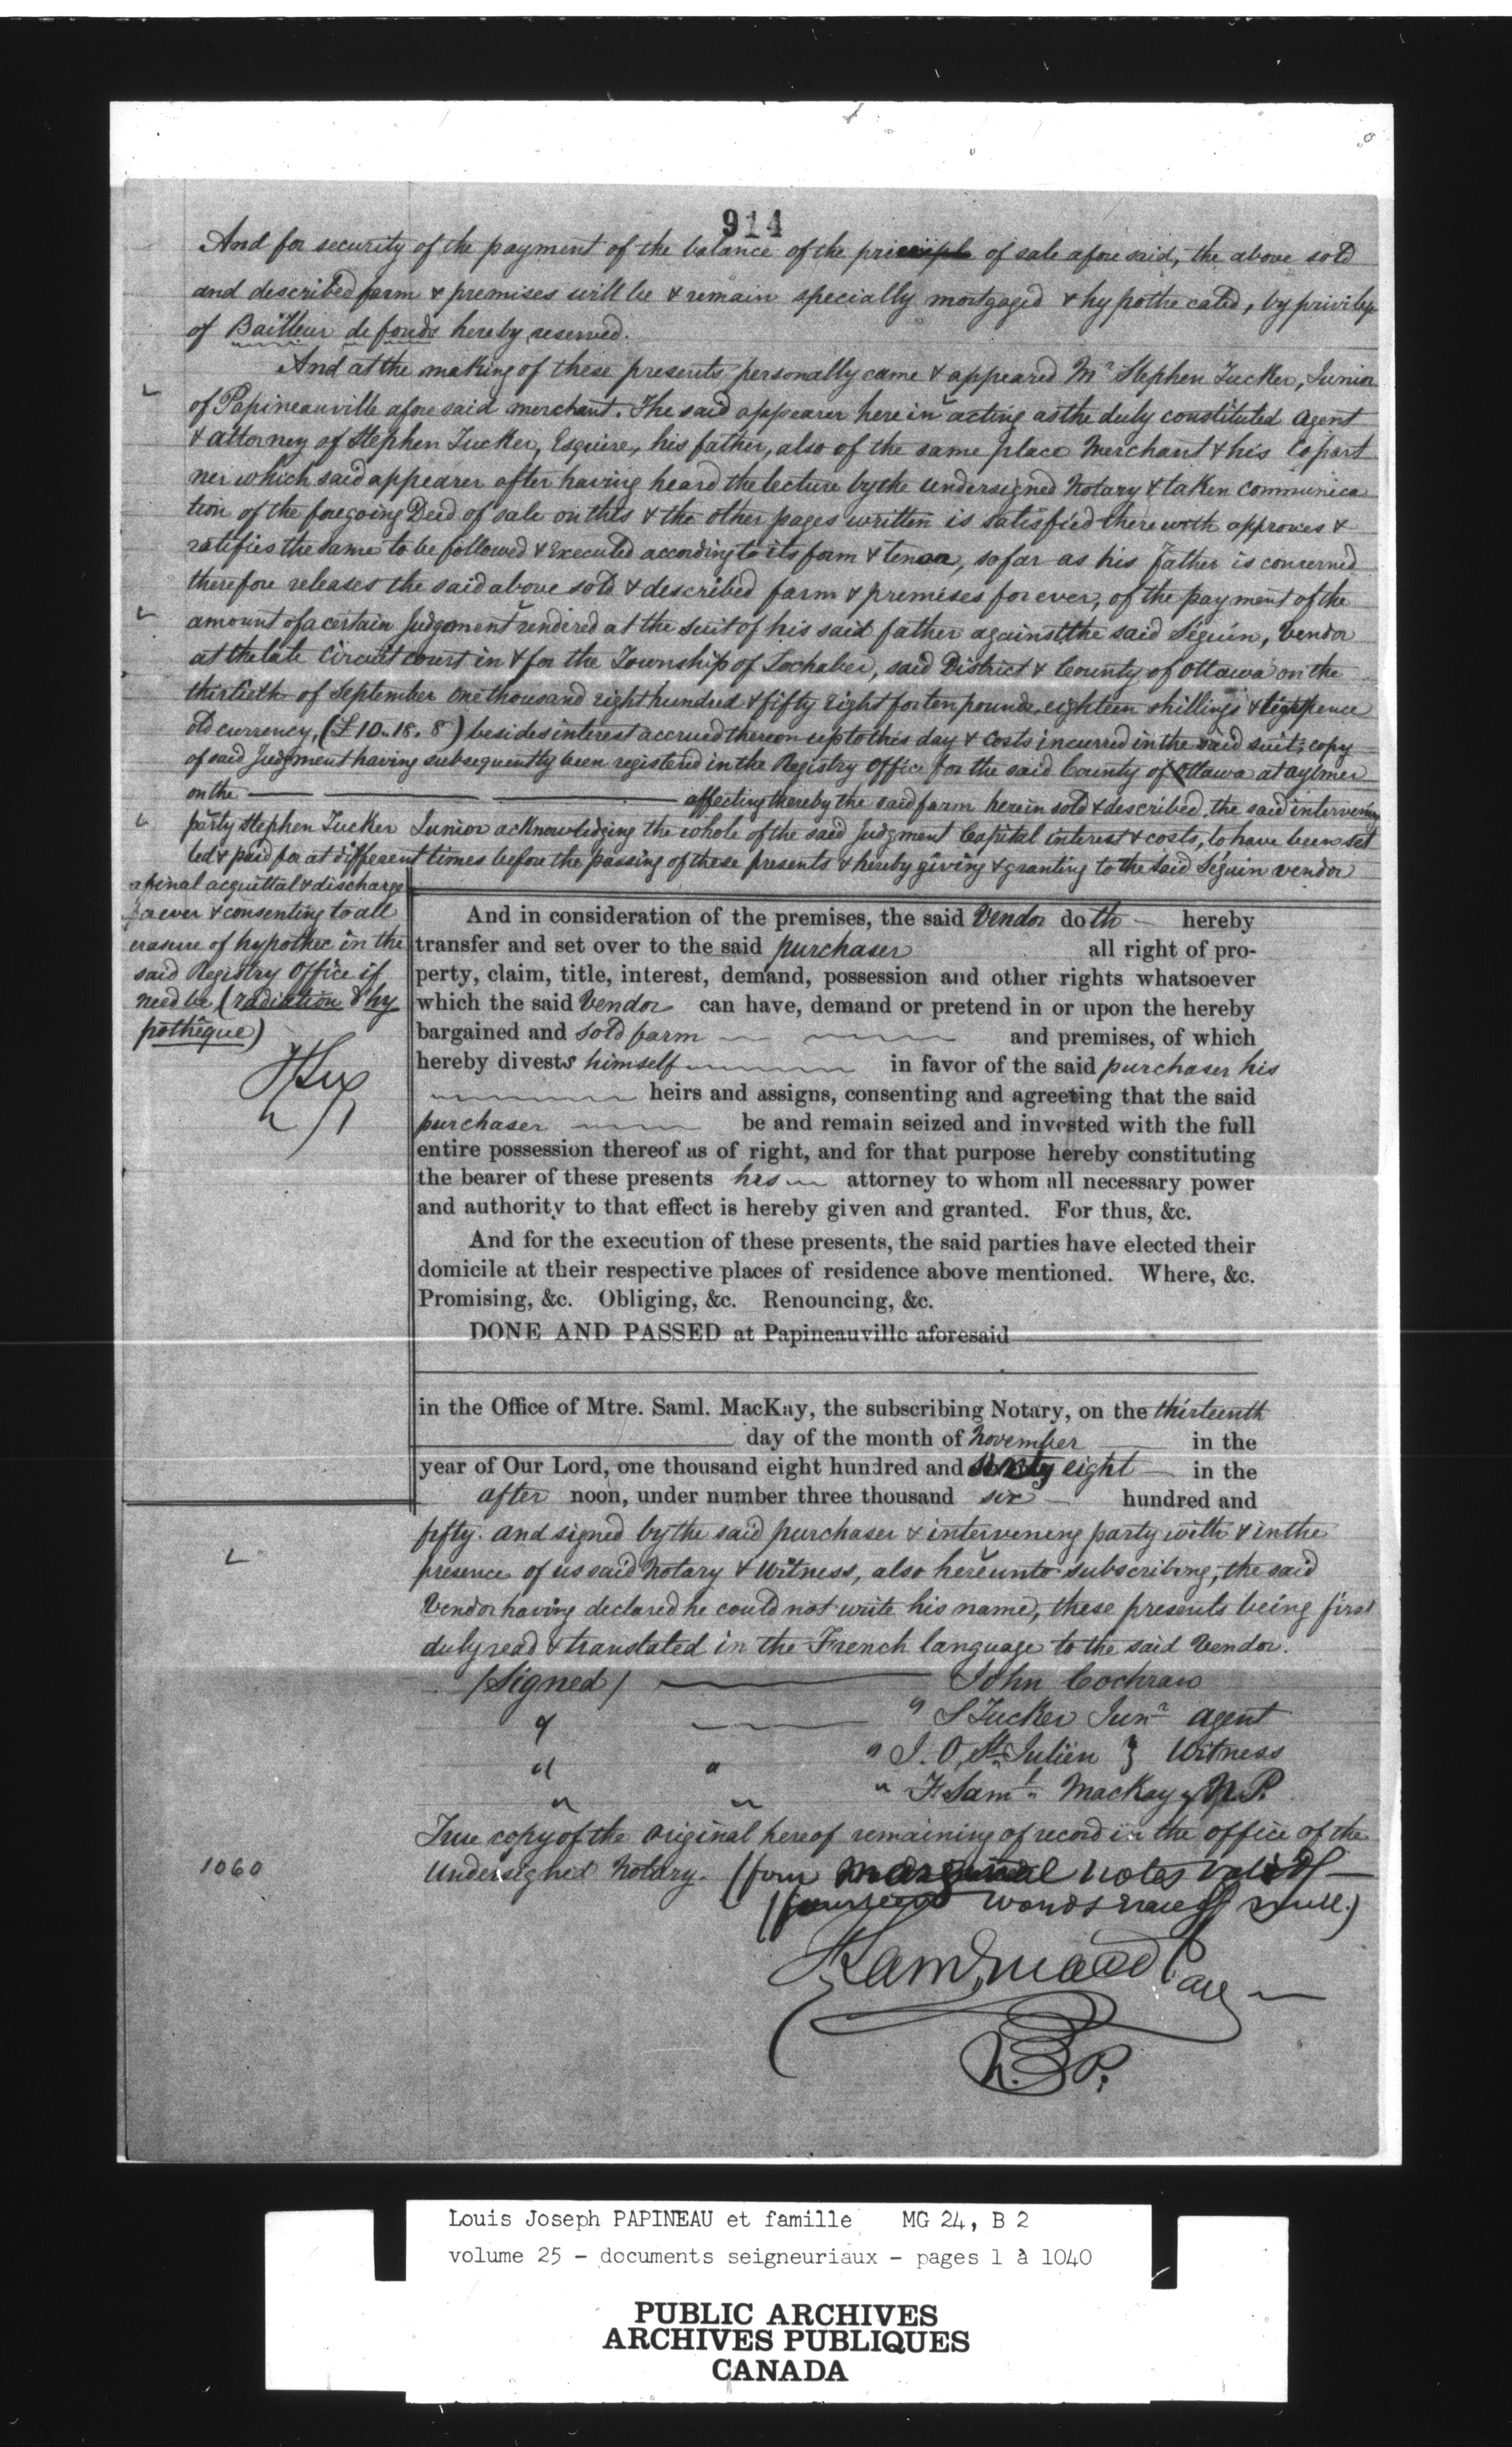 914
And for security of the payment of the balance of the of sale afore said, the above sold
and described farm & premises will be & remain specially mortgaged & hypothecated, by privilege
of Bailleur de fonds hereby reserved.
And at the making of these presents personally came & appeared Mr Stephen Tucker, Junior
of Papineauville afore said merchant. The said appearer herein acting as the duly constituted agent
& attorney of Stephen Tucker, Esquire, his father, also of the same place Merchant & his Copart
ner which said appearer after having heard the lecture by the undersigned Notary & taken communica
tion of the foregoing Deed of sale on this & the other pages written is satisfied therewith approves &
ratifies the same to be followed & Executed according to its form & tenor, so far as his father is concerned
therefore releases the said above sold & described farm & premises for ever, of the payment of the
amount of a certain Judgement rendered at the suit of his said father against the said Séguin, Vendor
at the late Circuit court in & for the Township of Lochaber, said District & County of Ottawa on the
thirtieth of September One thousand eight hundred & fifty Eight for ten pounds, eighteen shillings & eight pence
old currency, (£10.. 18. 8) besides interest accrued thereon up to this day & Costs incurred in the said suit; copy
of said Judgment having subsequently been registered in the Registry Office for the said County of Ottawa at aylmer
on the affecting thereby the said farm herein sold & described, the said intervening
party Stephen Tucker Junior acknowledging the whole of the said Judgment Capital interest & costs, to have been set
led & paid for at different times before the passing of these presents & hereby giving & granting to the said Séguin vendor
a final acquittal & discharge
for ever & consenting to all
erasure of hypothec in the
said Registry Office if
need be (radiation d'hy
pothèque)
And in consideration of the premises, the said Vendor doth hereby
transfer and set over to the said purchaser all right of pro-
perty, claim, title, interest, demand, possession and other rights whatsoever
which the said Vendor can have, demand or pretend in or upon the hereby
bargained and sold farm and premises, of which
hereby divests himself in favor of the said purchaser his
heirs and assigns, consenting and agreeing that the said
purchaser be and remain seized and invested with the full
entire possession thereof as of right, and for that purpose hereby constituting
the bearer of these presents his attorney to whom all necessary power
and authority to that effect is hereby given and granted. For thus, &c.
And for the execution of these presents, the said parties have elected their
domicile at their respective places of residence above mentioned. Where, &c.
Promising, &c. Obliging, &c. Renouncing, &c.
DONE AND PASSED at Papineauville aforesaid
in the Office of Mtre. Saml. MacKay, the subscribing Notary, on the thirteenth
day of the month of November in the
year of Our Lord, one thousand eight hundred and sixty eight in the
after noon, under number three thousand six hundred and
fifty. and signed by the said purchaser & intervening party with & in the
presence of us said Notary & Witness, also hereunto subscribing, the said
Vendor having declared he could not write his name, these presents being first
duly read & translated in the French language to the said Vendor.
(Signed) John Cochran
" S Tucker Junr agent
" " " J. O. St Julien } Witness
" " " F. Saml. MacKay N.P.
True copy of the original hereof remaining of record in the office of the
1060
Undersigned Notary. (four marginal notes valid
(fourteen words null.)
N.P.
Louis Joseph PAPINEAU et famille MG 24, B 2
volume 25 - documents seigneuriaux - pages 1 à 1040
PUBLIC ARCHIVES
ARCHIVES PUBLIQUES
CANADA